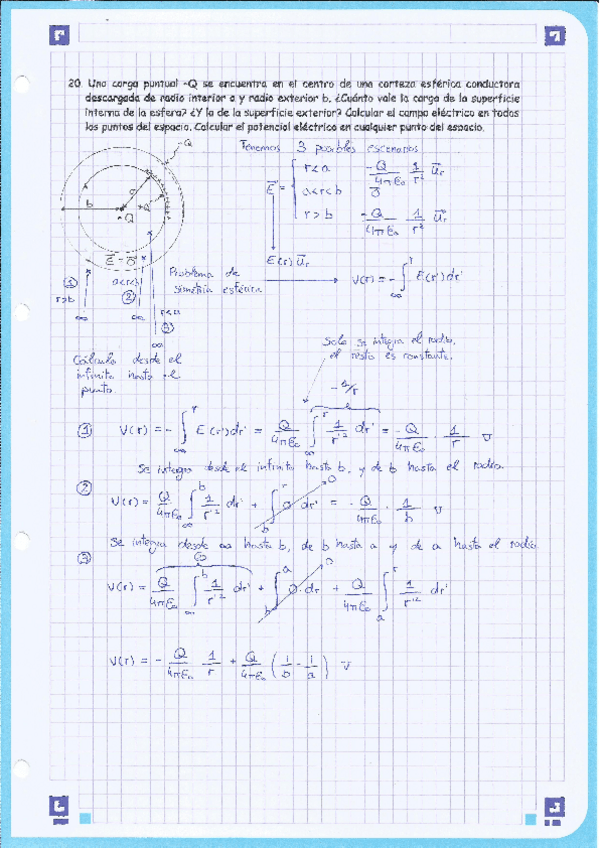 20. Una carga puntual -Q se encuentra en el centro de una corteza esférica conductora
descargada de radio interior a y radio exterior b. ¿Cuánto vale la carga de la superficie
interna de la esfera? ¿Y la de la superficie exterior? Calcular el campo eléctrico en todos
los puntos del espacio. Calcular el potencial eléctrico en cualquier punto del espacio.
Tenemos 3 posibles escenarios
-Q
a
b
+Q
-Q
E = 0
E = { r<a -Q/4πε₀ 1/r² ur
a<r<b 0
r>b -Q/4πε₀ 1/r² ur
E(r) ur
V(r) = -∫∞^r E(r')dr'
Problema de
simetría esférica
① r>b ∞
a<r<b ② ∞
r<a ③ ∞
Cálculo desde el
infinito hasta el
punto.
Solo se integra el radio,
el resto es constante.
-1/r
① V(r) = -∫∞^r E(r')dr' = Q/4πε₀ ∫∞^r 1/r'² dr' = -Q/4πε₀ · 1/r V
Se integra desde el infinito hasta b, y de b hasta el radio.
② V(r) = Q/4πε₀ ∫∞^b 1/r'² dr' + ∫b^r 0 dr' = -Q/4πε₀ · 1/b V
Se integra desde ∞ hasta b, de b hasta a y de a hasta el radio.
③ V(r) = Q/4πε₀ ∫∞^b 1/r'² dr' + ∫b^a 0·dr + Q/4πε₀ ∫a^r 1/r'² dr'
V(r) = -Q/4πε₀ 1/r + Q/4πε₀ (1/b - 1/a) V